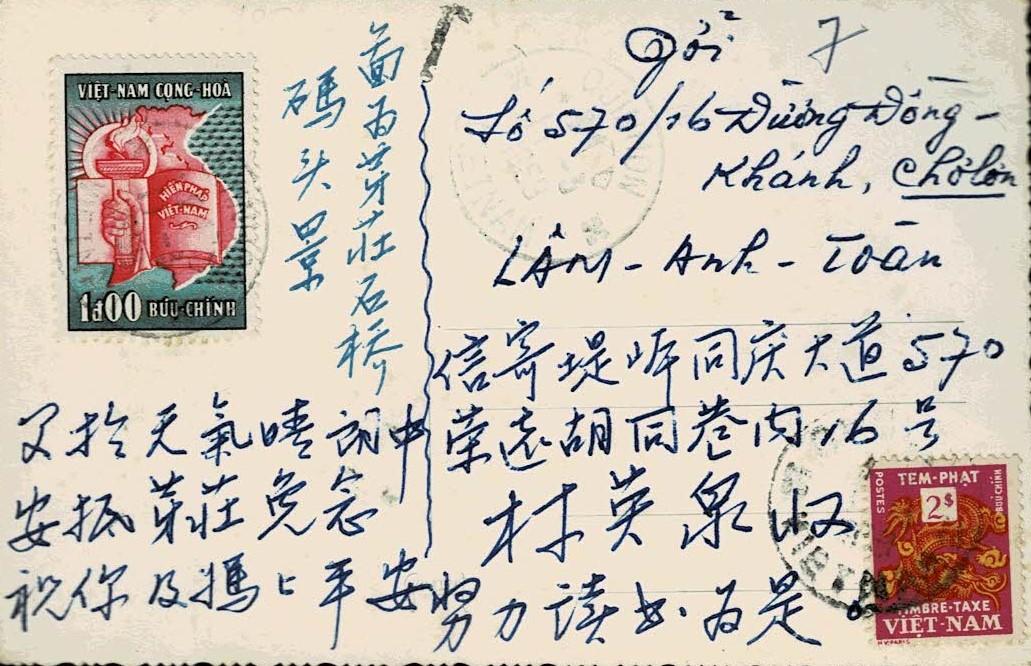 VIỆT-NAM CỘNG-HOÀ
HIẾN PHÁP
VIỆT-NAM
1đ00 BƯU-CHÍNH
为芽莊石桥
碼头景
父於天氣晴朗中
安抵芽莊免念
祝你及媽々平安努力读书为是。
Gởi 7
Số 570/16 Đường Đồng-
Khánh, Chợlớn
LÂM-Anh-Toàn
信寄堤岸同庆大道570
荣远胡同巷内16号
林英泉收
TEM-PHẠT
POSTES
2$
BƯU-CHÍNH
TIMBRE-TAXE
VIỆT-NAM